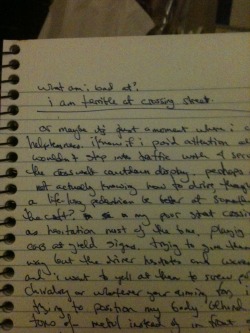 what am i bad at?
i am terrible at crossing street.
or maybe it's just a moment where i
helplessness. i know if i paid attention
wouldn't step into traffic
the crosswalk countdown display. perhaps
not actually knowing how to drive
a life-long pedestrian be better at
the craft? my poor street
as hesitation most of the time, playing
cars at yield signs. trying to give them
way but the driver hesitates and
and i want to yell at them to screw
chivalry or whatever your aiming for, i
trying to position my body behind
tons of metal instead of in front